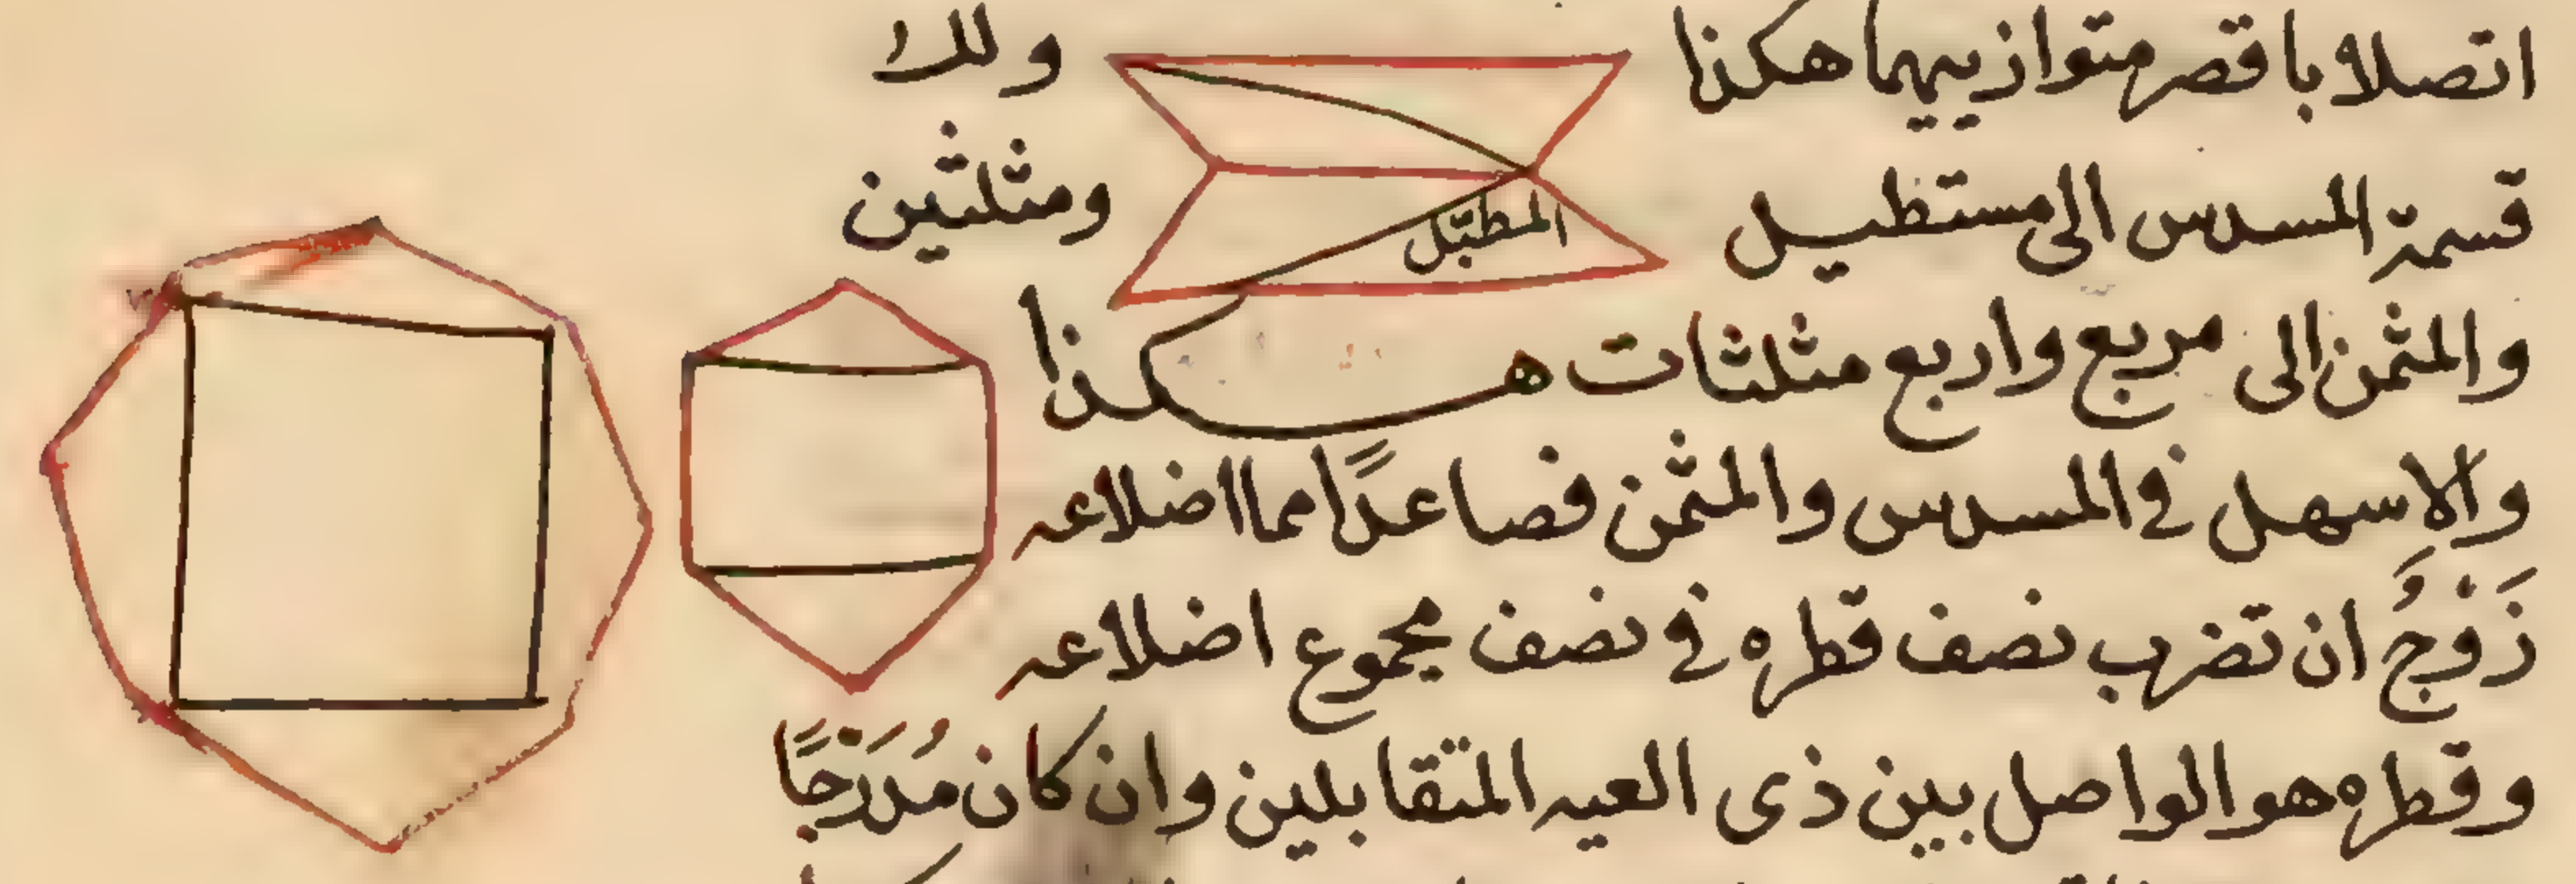 اتصلا باقصر متوازييهما هكذا ولك
المطبّل
قسمة المسدس الى مستطيل ومثلثين
والمثمن الى مربع واربع مثلثات هكذا
والاسهل فى المسدس والمثمن فصاعدًا مما اضلاعه
زَوْجُ ان تضرب نصف قطره فى نصف مجموع اضلاعه
وقطره هو الواصل بين ذى العيه المتقابلين وان كان مُدَرَّجًا